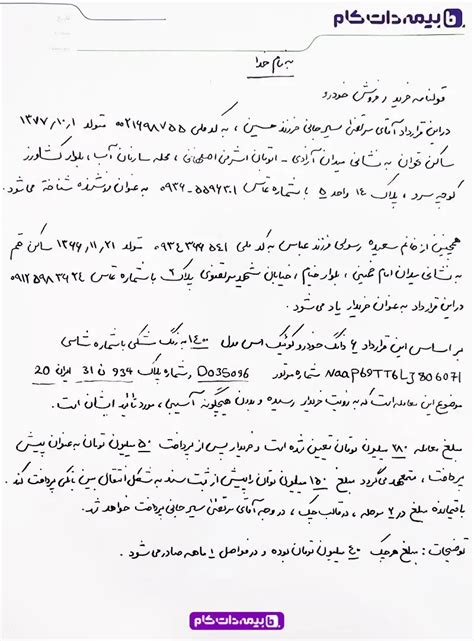 بیمه دات کام
به نام خدا
قولنامه خرید و فروش خودرو
در این قرارداد آقای مرتضی میرجانی فرزند حسین ، به کد ملی متولد ۱۳۷۷/۱۰/۱
ساکن تهران به نشانی میدان آزادی - اتوبان اشرفی اصفهانی ، محله سازمان آب ، بلوار کشاورز
کوچه سرد ، پلاک ۱۴ واحد ۵ با شماره تماس به عنوان فروشنده شناخته می‌شود .
همچنین از خانم سعیده رسولی فرزند عباس به کد ملی متولد ۱۳۶۶/۱۱/۲۱ ساکن قم
به نشانی میدان امام خمینی ، بلوار خیام ، خیابان شهید مرتضوی پلاک ۲ با شماره تماس
در این قرارداد به عنوان خریدار یاد می‌شود .
بر اساس این قرارداد ۶ دانگ خودرو کوئیک اس مدل ۱۴۰۰ به رنگ مشکی با شماره شاسی
شماره موتور شماره پلاک ۹۳۴ ن 31 ایران 20
موضوع این معامله است که به رؤیت خریدار رسیده و بدون هیچگونه آسیبی ، مورد تائید ایشان است .
مبلغ معامله ۲۸۰ میلیون تومان تعیین شده است و خریدار پس از پرداخت ۵۰ میلیون تومان به عنوان پیش
پرداخت ، متعهد می‌گردد مبلغ ۱۵۰ میلیون تومان را پیش از ثبت سند به شکل انتقال بین بانکی پرداخت کند .
باقیمانده مبلغ در ۲ مرحله ، در قالب چک ، در وجه آقای مرتضی میرجانی پرداخت خواهد شد .
توضیحات : مبلغ هر چک ۴۰ میلیون تومان بوده و در فواصل ۱ ماهه صادر می‌شود .
بیمه دات کام